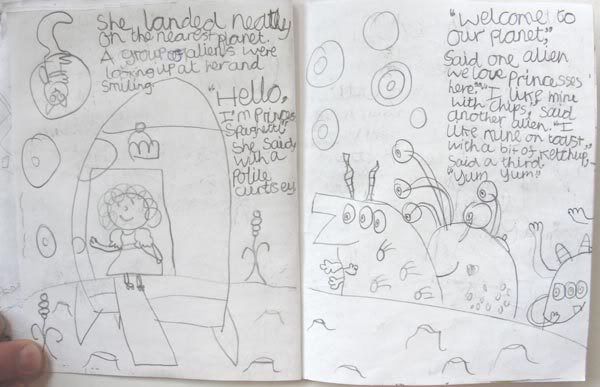 She landed neatly
on the nearest planet.
A group of aliens were
looking up at her and
smiling.
"Hello,
I'm Princess
Spaghetti"
She said
with a
Polite
curtsey
"Welcome to
our planet,"
Said one alien
we love Princesses
here". "I like mine
with chips," said
another alien. "I
like mine on toast,
with a bit of ketchup,"
Said a third
"Yum Yum"